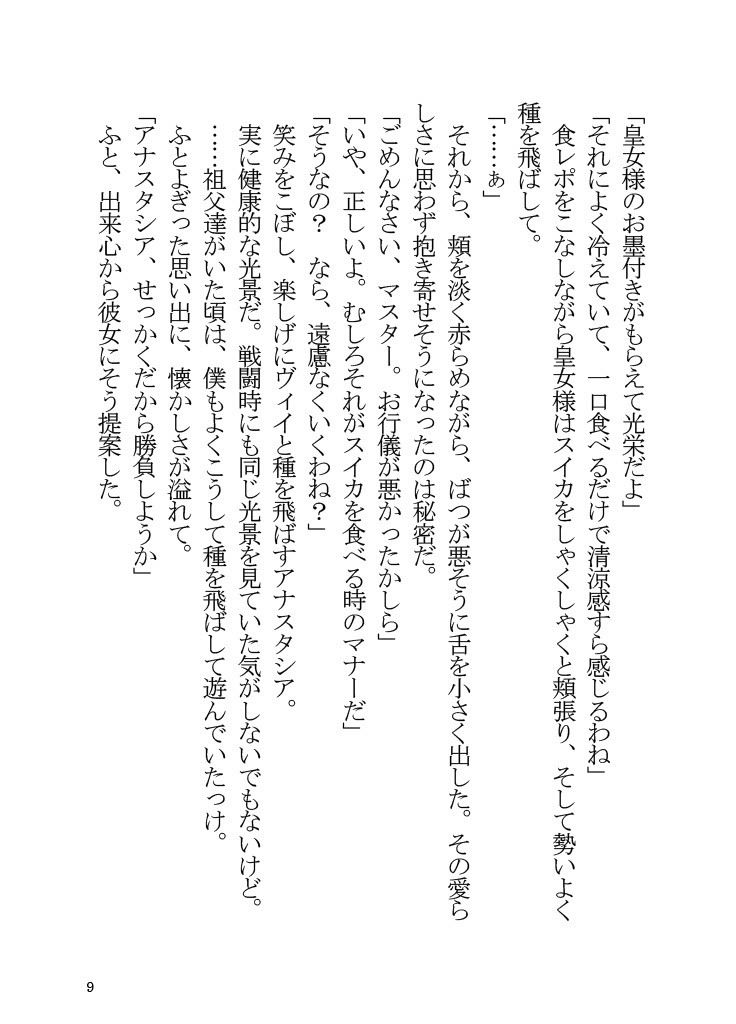 「皇女様のお墨付きがもらえて光栄だよ」
「それによく冷えていて、一口食べるだけで清涼感すら感じるわね」
食レポをこなしながら皇女様はスイカをしゃくしゃくと頬張り、そして勢いよく
種を飛ばして。
「……ぁ」
それから、頬を淡く赤らめながら、ばつが悪そうに舌を小さく出した。その愛ら
しさに思わず抱き寄せそうになったのは秘密だ。
「ごめんなさい、マスター。お行儀が悪かったかしら」
「いや、正しいよ。むしろそれがスイカを食べる時のマナーだ」
「そうなの？　なら、遠慮なくいくわね？」
笑みをこぼし、楽しげにヴィイと種を飛ばすアナスタシア。
実に健康的な光景だ。戦闘時にも同じ光景を見ていた気がしないでもないけど。
……祖父達がいた頃は、僕もよくこうして種を飛ばして遊んでいたっけ。
ふとよぎった思い出に、懐かしさが溢れて。
「アナスタシア、せっかくだから勝負しようか」
ふと、出来心から彼女にそう提案した。
9